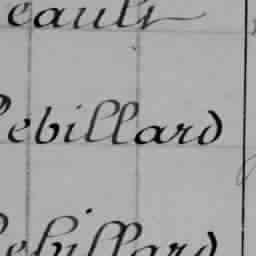 eault
Rebillard
Rebillard